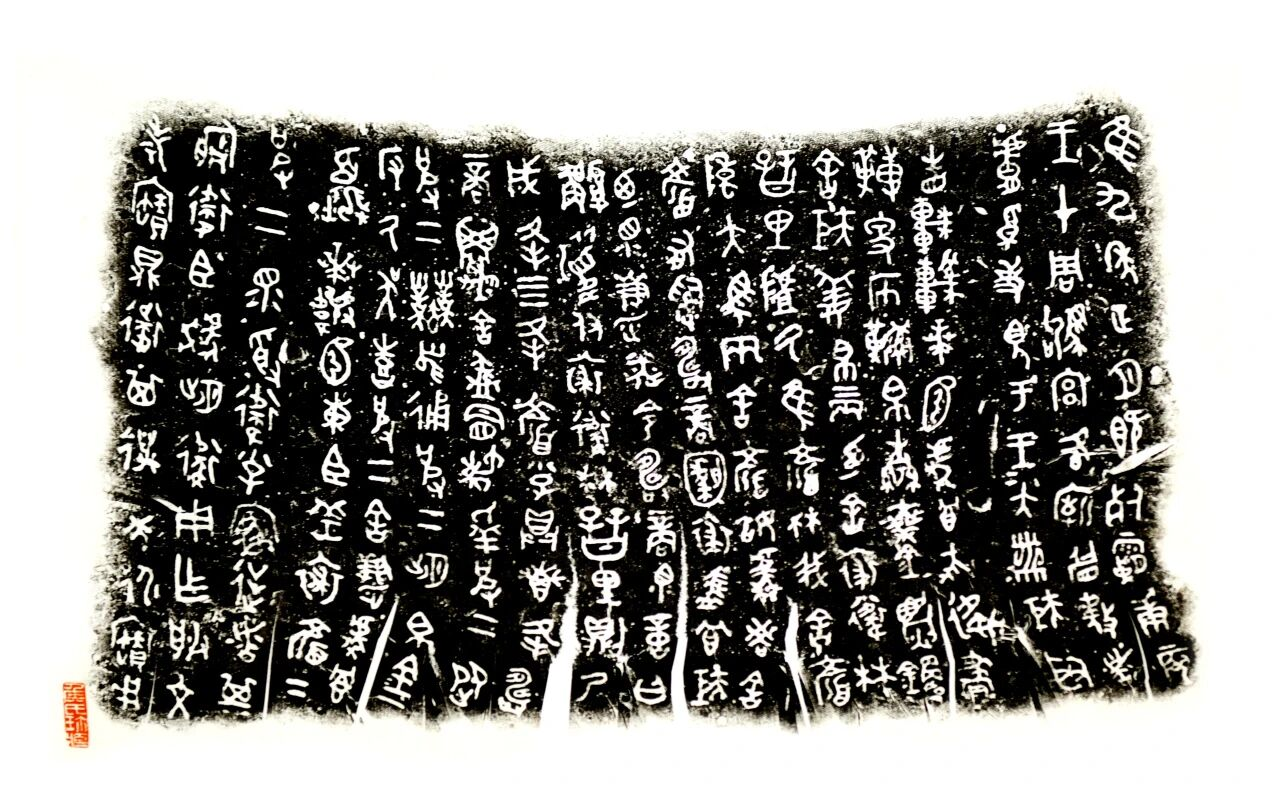 隹九年正月既死霸庚辰
王才周駒宮各廟眉敖者
膚為吏見于王王大黹矩取
眚車較虎冟畫
轉鞭席帛轡乘金
舍矩姜帛三兩乃舍裘衛林
里厥隹顏林我舍顏
陳大馬兩舍顏姒舍
顏有司壽商貈裘盠冟矩
迺眔粦令壽商眔啻曰
顜履付裘衛林里則乃
成夆四夆顏小子具叀夆壽
商舍盠冒梯羝皮二
皮二業舄踊皮二朏帛金
一反厥吳喜皮二舍冟
東臣羔裘顏下
皮二眔受衛小子家逆者其
匍衛臣虣朏衛用乍朕文
考寶鼎衛其萬年永寶用